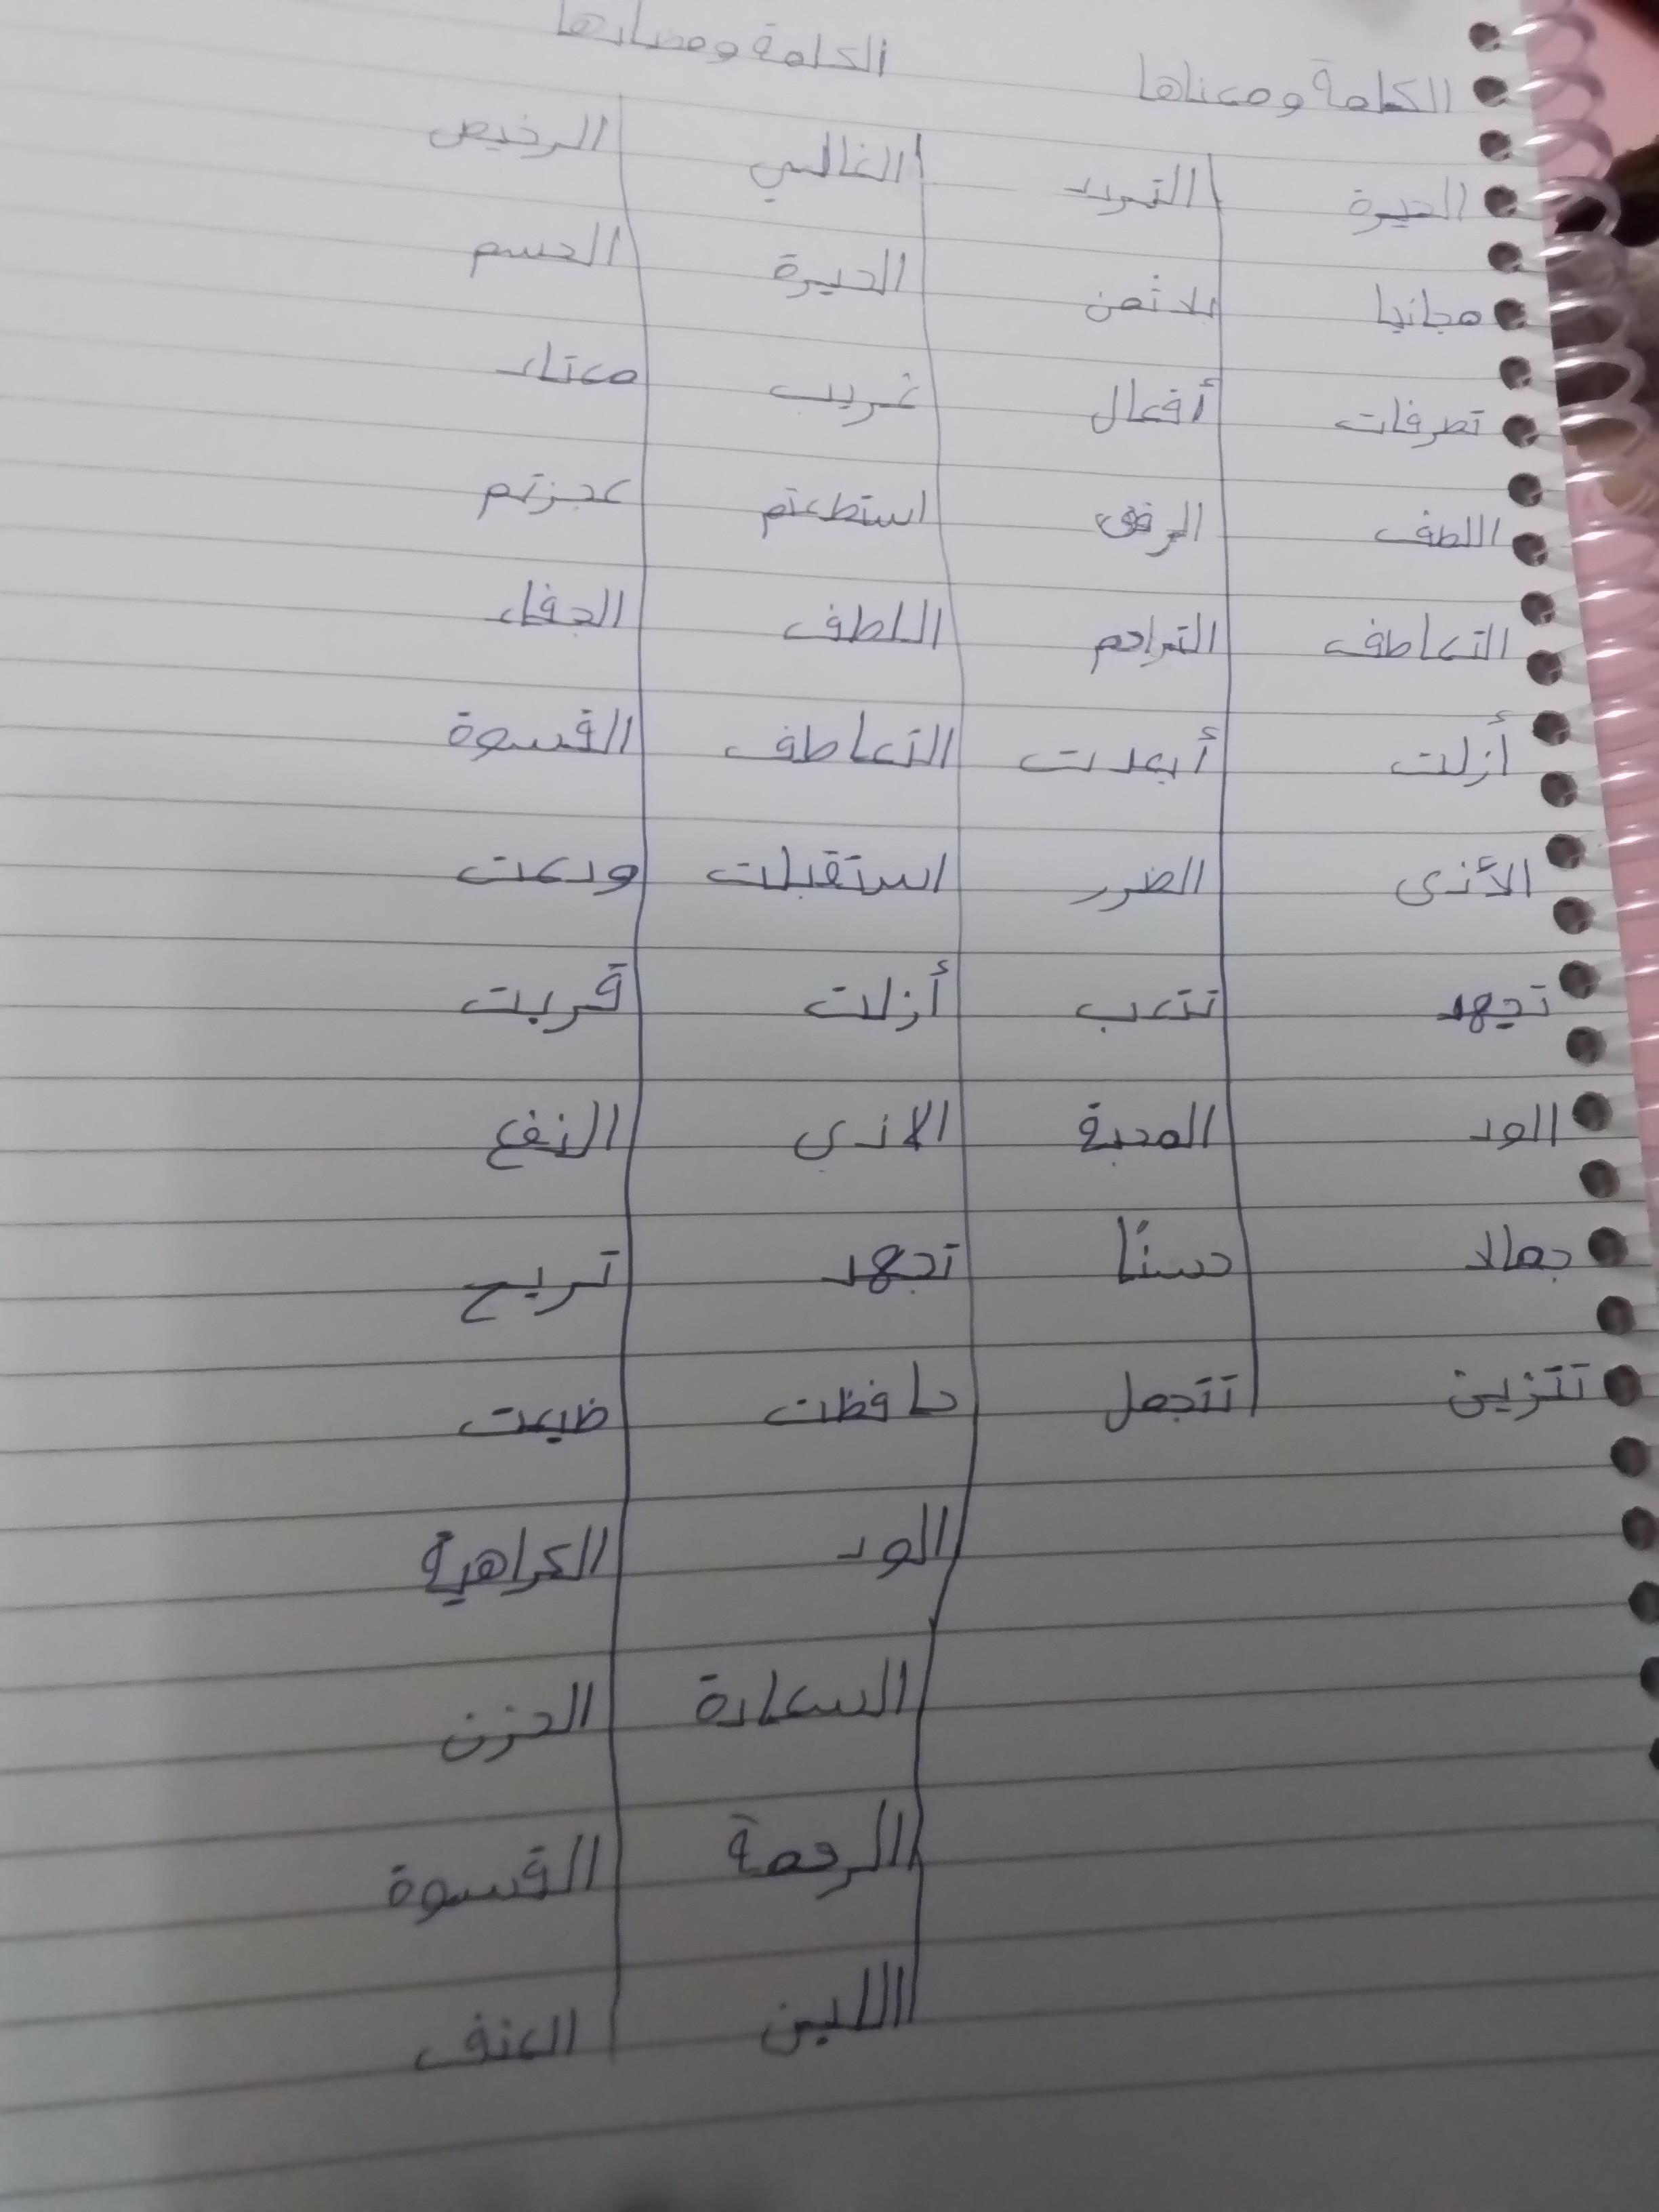 الكلمة ومعناها الكلمة ومضادها
الحيرة التردد الغالي الرخيص
مجانيا بلا ثمن الحيرة الحسم
تصرفات أفعال غريب معتاد
اللطف الرفق استطعتم عجزتم
التعاطف التراحم اللطف الجفاء
أزلت أبعدت التعاطف القسوة
الأذى الضرر استقبلت ودعت
تجهد تتعب أزلت قربت
الود المحبة الاذى النفع
جمالا حسنًا تجهد تريح
تتزين تتجمل حافظت ضيعت
الود الكراهية
السعادة الحزن
الرحمة القسوة
اللين العنف